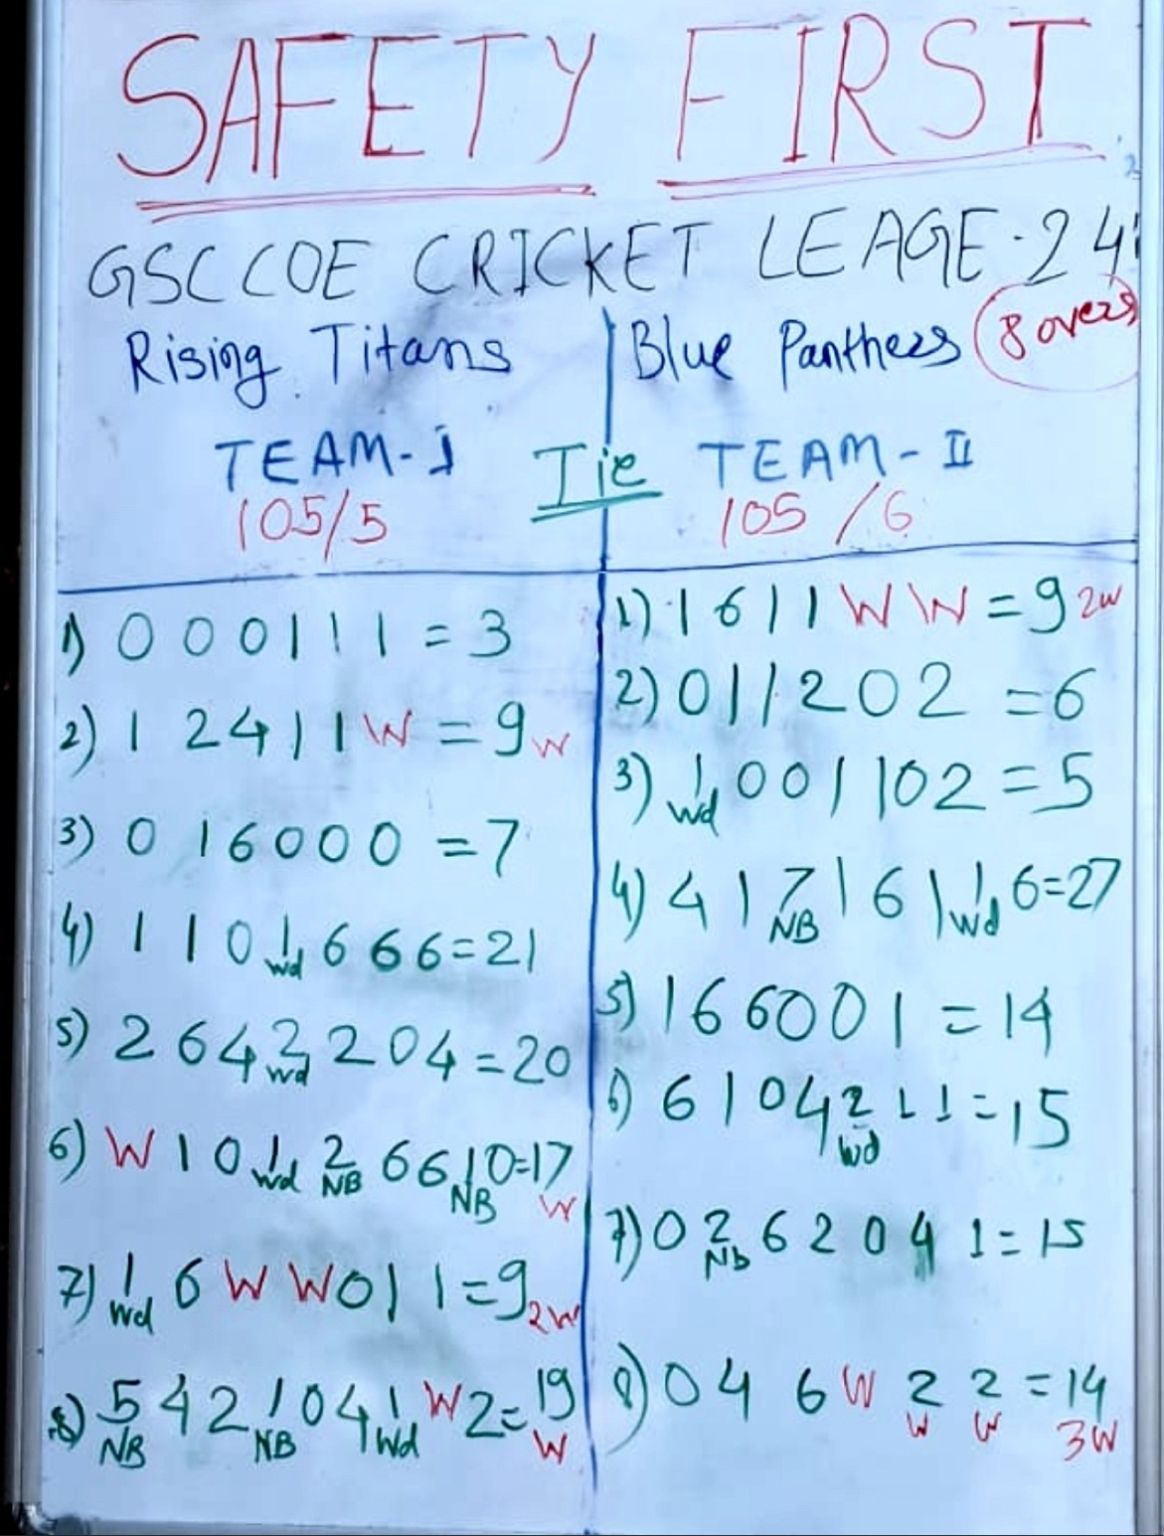 SAFETY FIRST
GSCCOE CRICKET LEAGE-24
Rising Titans
Blue Panthers 8 overs
TEAM-I Tie TEAM-II
105/5
105/6
1) 0 0 0 1 1 1 = 3
2) 1 2 4 1 1 W = 9 W
3) 0 1 6 0 0 0 = 7
4) 1 1 0 1 wd 6 6 6 = 21
5) 2 6 4 2 wd 2 0 4 = 20
6) W 1 0 1 wd 2 NB 6 6 1 NB 0 = 17 W
7) 1 wd 6 W W 0 1 1 = 9 2W
8) 5 NB 4 2 1 NB 0 4 1 wd W 2 = 19 W
1) 1 6 1 1 W W = 9 2W
2) 0 1 1 2 0 2 = 6
3) 1 wd 0 0 1 1 0 2 = 5
4) 4 1 7 NB 1 6 1 1 wd 6 = 27
5) 1 6 6 0 0 1 = 14
6) 6 1 0 4 2 wd 1 1 = 15
7) 0 2 Nb 6 2 0 4 1 = 15
8) 0 4 6 W 2 W 2 W = 14 3W